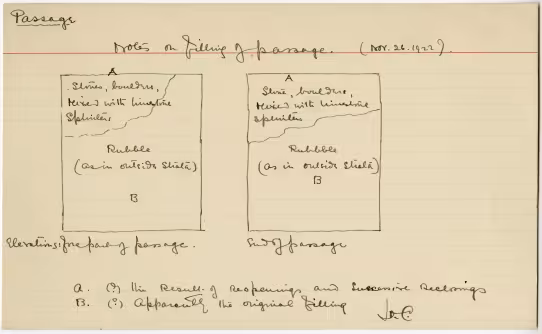 Passage
Notes on filling of passage. (Nov. 26. 1922).
A
Stones, boulders,
Mixed with limestone
Splinters
Rubbble
(as in outside strata)
B
A
Stones, boulders,
Mixed with limestone
Splinters
Rubbble
(as in outside strata)
B
Elevation: fore part of passage.
End of passage
A. (?) The Result of reopenings and Successive reclosings
B. (?) Apparently the original filling
H.C.